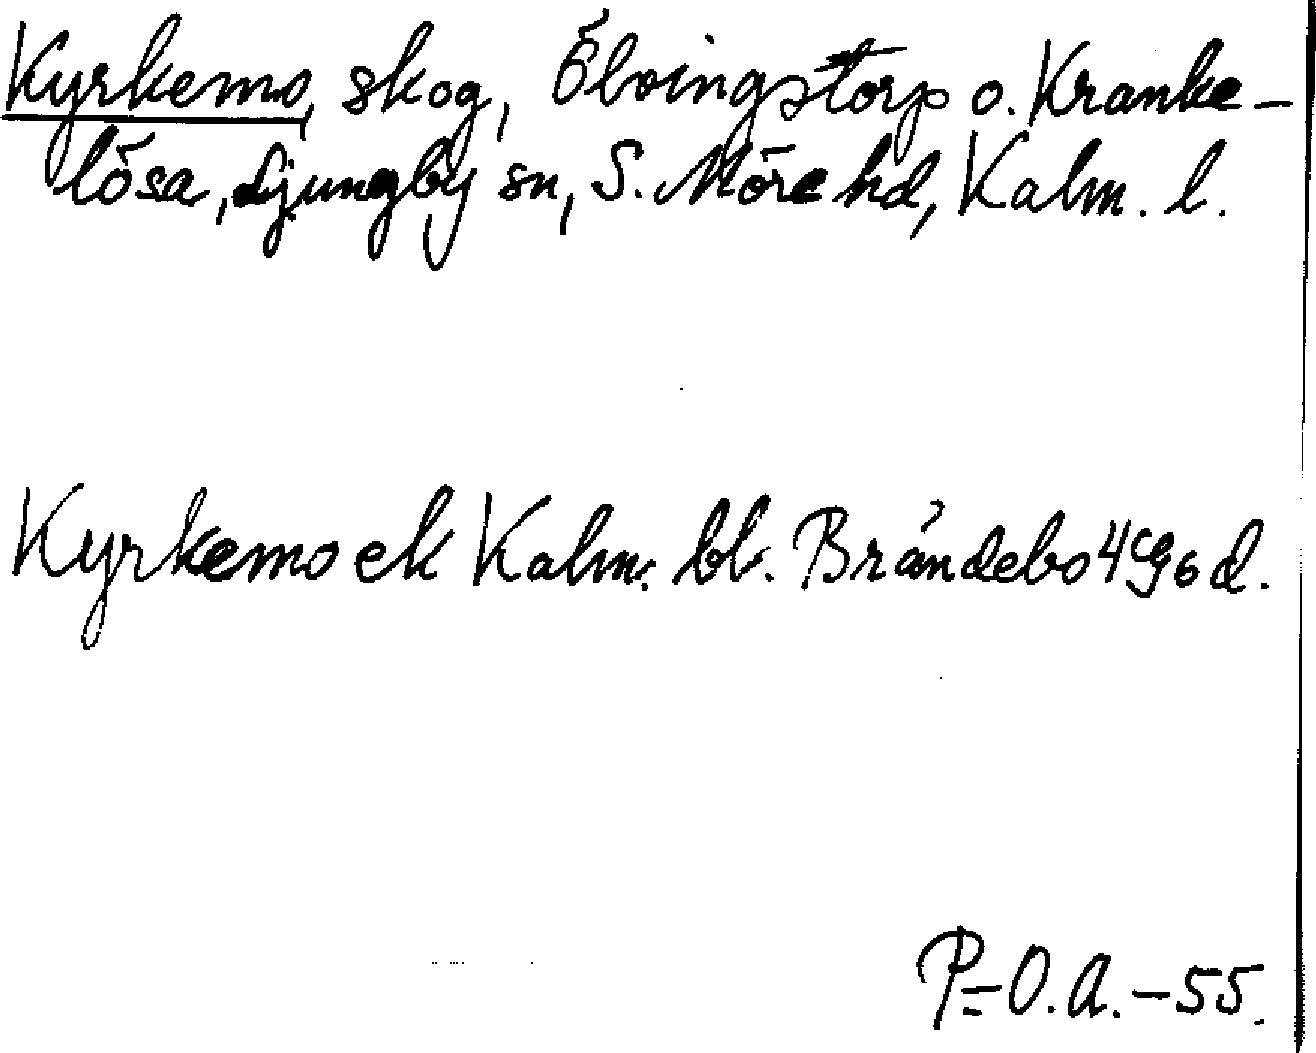 Kyrkemo, skog, Ölvingstorp o. Kranke-
lösa, Ljungby sn, S. Möre hd, Kalm. l.
Kyrkemo ek Kalm. bl. Brändebo 4 9 6 d.
P-O.A.-55.